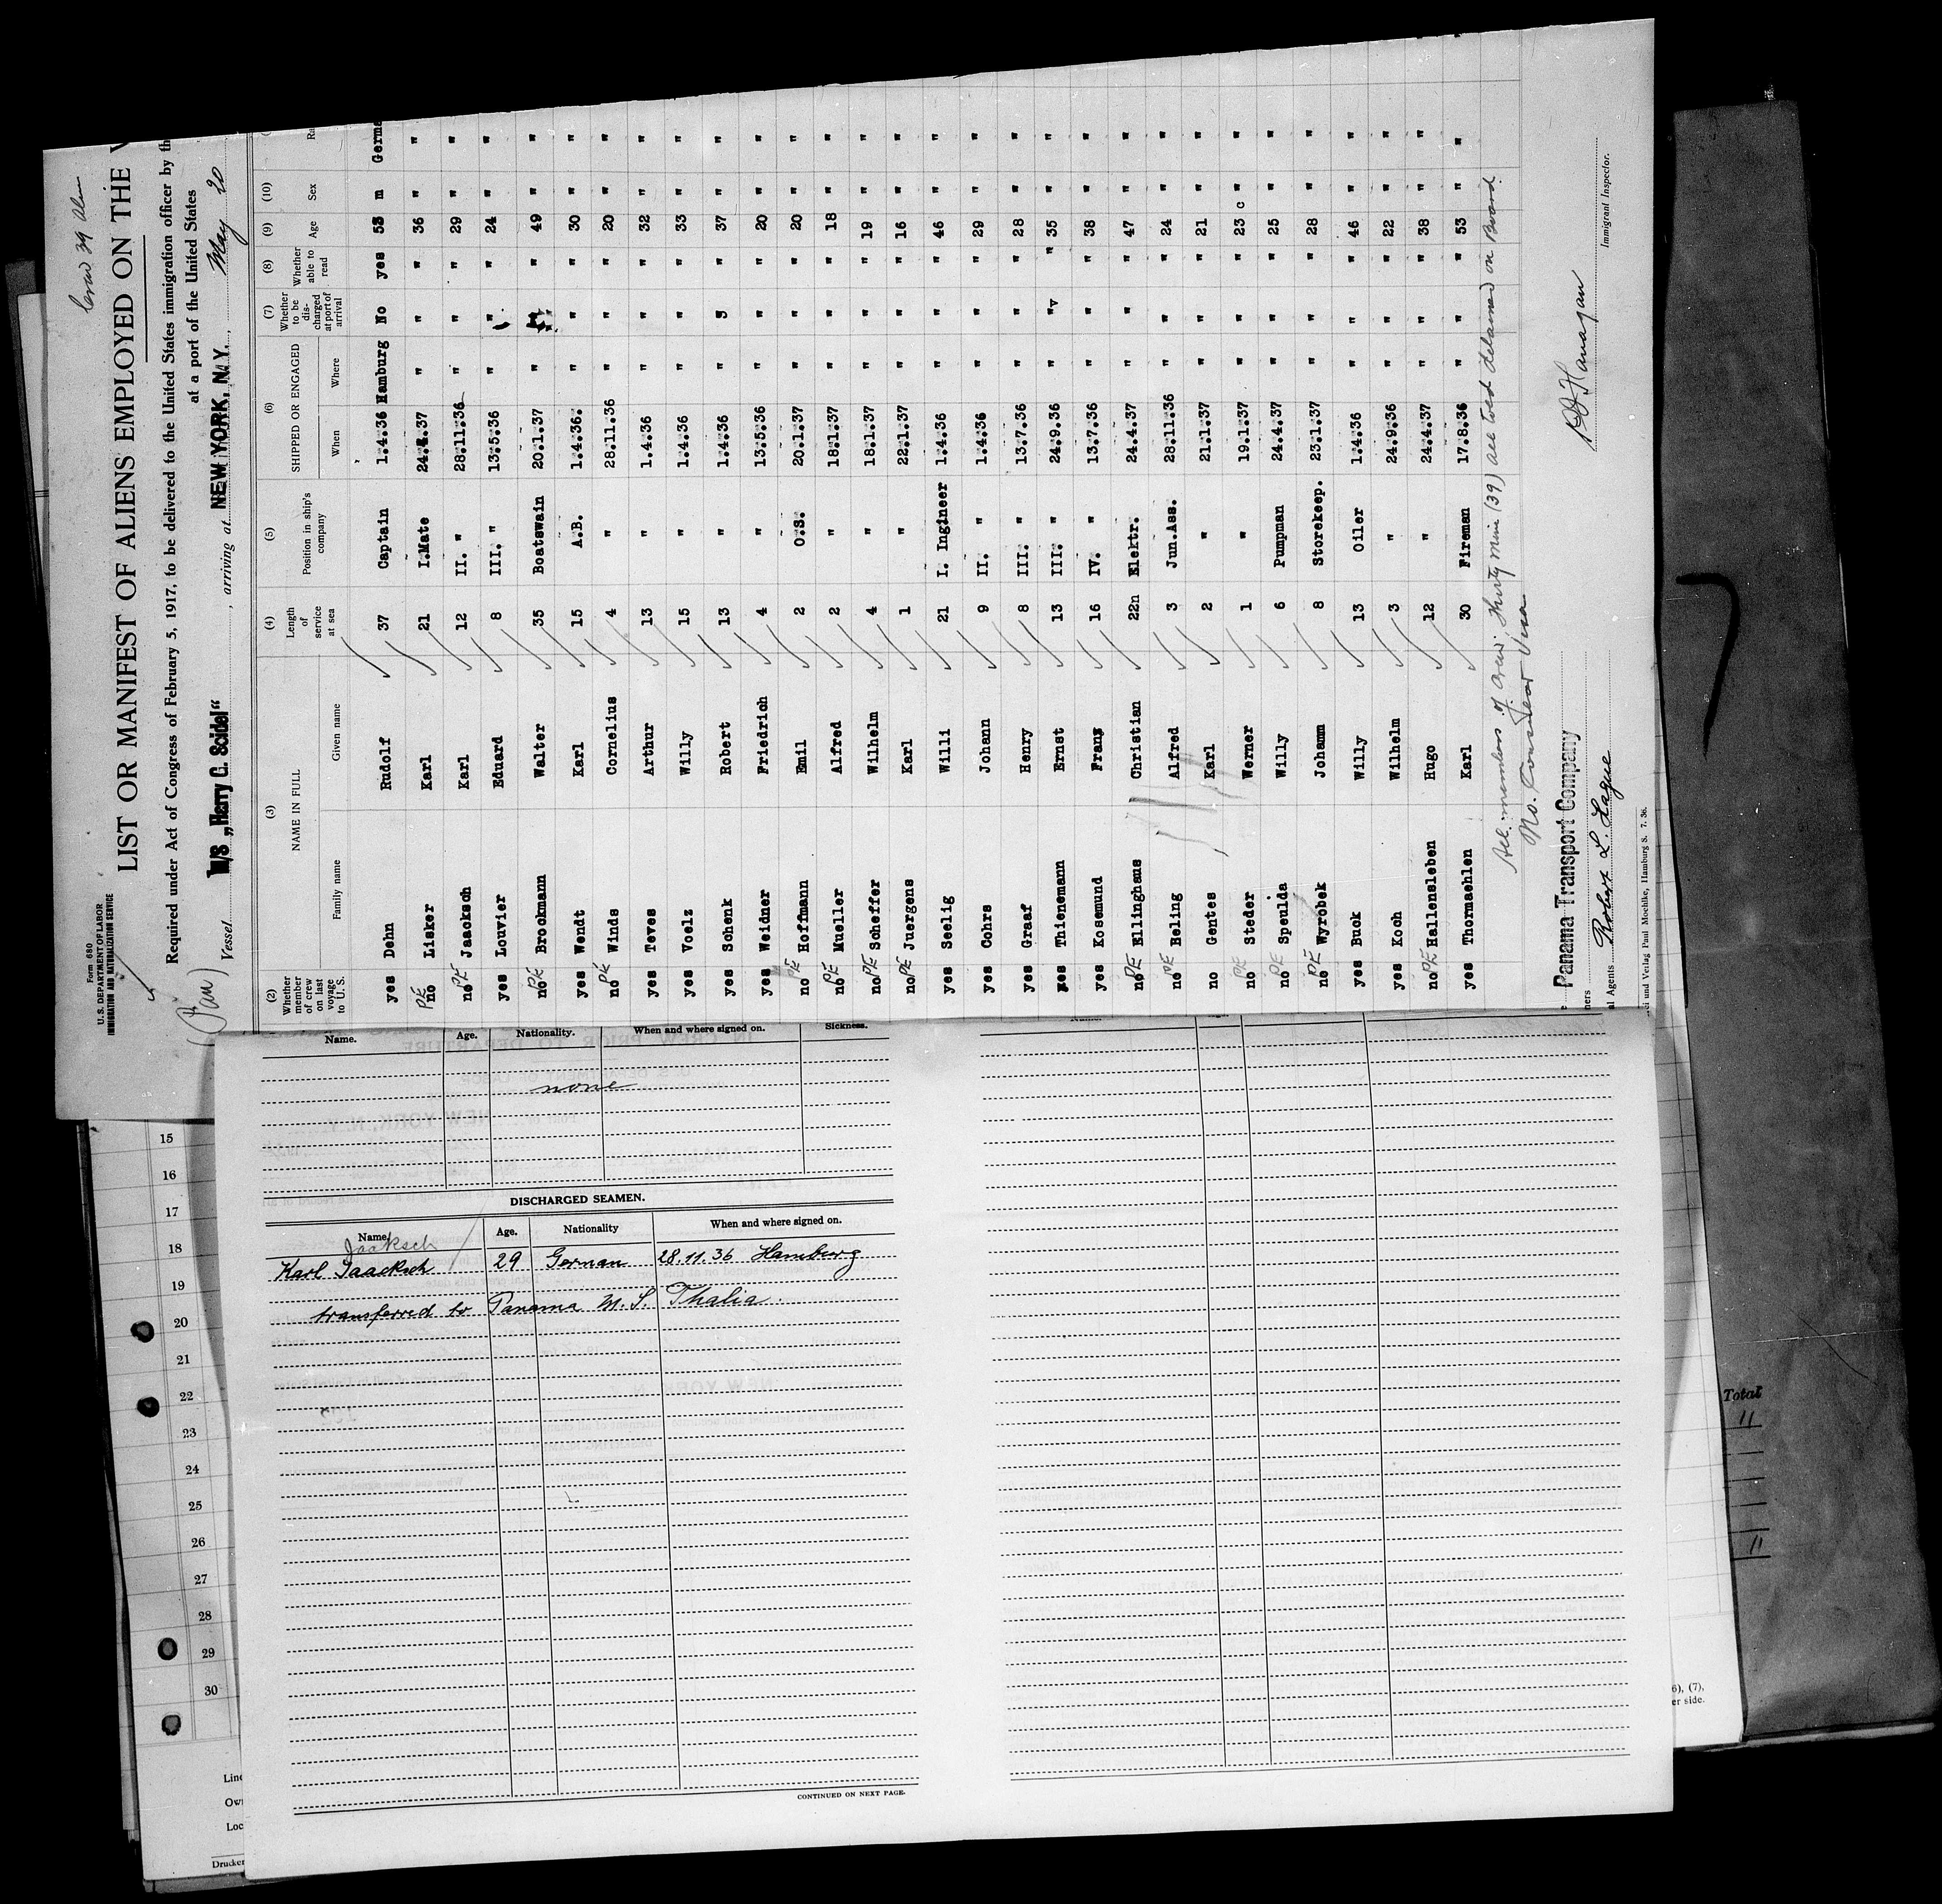 Form 680
U.S. DEPARTMENT OF LABOR
IMMIGRATION AND NATURALIZATION SERVICE
Crew 39 Alien
(Pan)
LIST OR MANIFEST OF ALIENS EMPLOYED ON THE V
Required under Act of Congress of February 5, 1917, to be delivered to the United States immigration officer by th
at a port of the United States
Vessel M/S „Harry G. Seidel“, arriving at NEW YORK, N.Y., May 20
(2) (3) (4) (5) (6) (7) (8) (9) (10)
Whether member of crew on last voyage to U. S. NAME IN FULL Length of service at sea Position in ship's company SHIPPED OR ENGAGED Whether to be discharged at port of arrival Whether able to read Age Sex Ra
Family name Given name When Where
yes Dehn Rudolf 37 Captain 1.4.36 Hamburg No yes 53 m Germa
no PE Lisker Karl 21 I.Mate 24.4.37 " " " 36 " "
no PE Jaacksch Karl 12 II. " 28.11.36 " " " 29 " "
yes Louvier Eduard 8 III. " 13.5.36 " " " 24 " "
no PE Brockmann Walter 35 Boatswain 20.1.37 " " 49 " "
yes Wendt Karl 15 A.B. 1.4.36. " " " 30 " "
no PE Winds Cornelius 4 " 28.11.36 " " " 20 " "
yes Teves Arthur 13 " 1.4.36 " " " 32 " "
yes Voelz Willy 15 " 1.4.36 " " " 33 " "
yes Schenk Robert 13 " 1.4.36 " " " 37 " "
yes Weidner Friedrich 4 " 13.5.36 " " " 20 " "
no PE Hoffmann Emil 2 O.S. 20.1.37 " " " 20 " "
no PE Mueller Alfred 2 " 18.1.37 " " " 18 " "
no PE Scheffer Wilhelm 4 " 18.1.37 " " " 19 " "
no PE Juergens Karl 1 " 22.1.37 " " " 16 " "
yes Seelig Willi 21 I. Ingineer 1.4.36 " " " 46 " "
yes Cohrs Johann 9 II. " 1.4.36 " " " 29 " "
yes Graaf Henry 8 III. " 13.7.36 " " " 28 " "
yes Thienemann Ernst 13 III. " 24.9.36 " " " 35 " "
yes Kosemund Franz 16 IV. " 13.7.36 " " " 38 " "
no PE Ellinghaus Christian 22n Elektr. 24.4.37 " " " 47 " "
no PE Beling Alfred 3 Jun.Ass. 28.11.36 " " " 24 " "
no Gentes Karl 2 " 21.1.37 " " " 21 " "
no PE Steder Werner 1 " 19.1.37 " " " 23 c " "
no PE Speulda Willy 6 Pumpman 24.4.37 " " " 25 " "
no PE Wyrobek Johamm 8 Storekeep. 23.1.37 " " " 28 " "
yes Buck Willy 13 Oiler 1.4.36 " " " 46 " "
yes Koch Wilhelm 3 " 24.9.36 " " " 22 " "
no PE Hallensleben Hugo 12 " 24.4.37 " " " 38 " "
yes Thormaehlen Karl 30 Fireman 17.8.36 " " " 53 " "
All members of crew Thirty nine (39) all told detained on Board
No. Consular Visa
Panama Transport Company
ners
al Agents Robert L. Lague
Immigrant Inspector.
ei und Verlag Paul Moehlke, Hamburg S. 7. 36.
Name. Age. Nationality. When and where signed on. Sickness.
none
DISCHARGED SEAMEN.
Name. Age. Nationality When and where signed on.
Jaaksch
Karl Jaacksch 29 German 28.11.36 Hamburg
transferred to Panama M. S. Thalia.
CONTINUED ON NEXT PAGE.
15
16
17
18
19
20
21
22
23
24
25
26
27
28
29
30
Line
Own
Loc
Drucker
Total
11
11
6), (7),
er side.